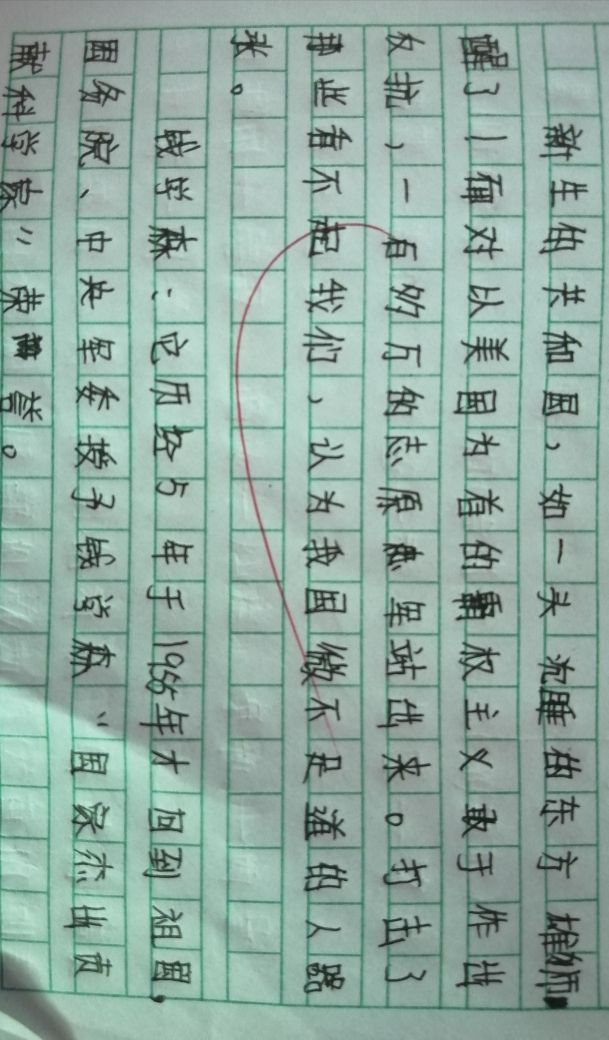 新生的共和国，如一头沉睡的东方雄狮，
醒了！面对以美国为首的霸权主义敢于作出
反抗，一百多万的志原军站出来。打击了
那些看不起我们，认为我国微不足道的人嚣
张。
钱学森：它历经5年于1955年才回到祖国，
国务院、中央军委授予钱学森"国家杰出贡
献科学家"荣誉。